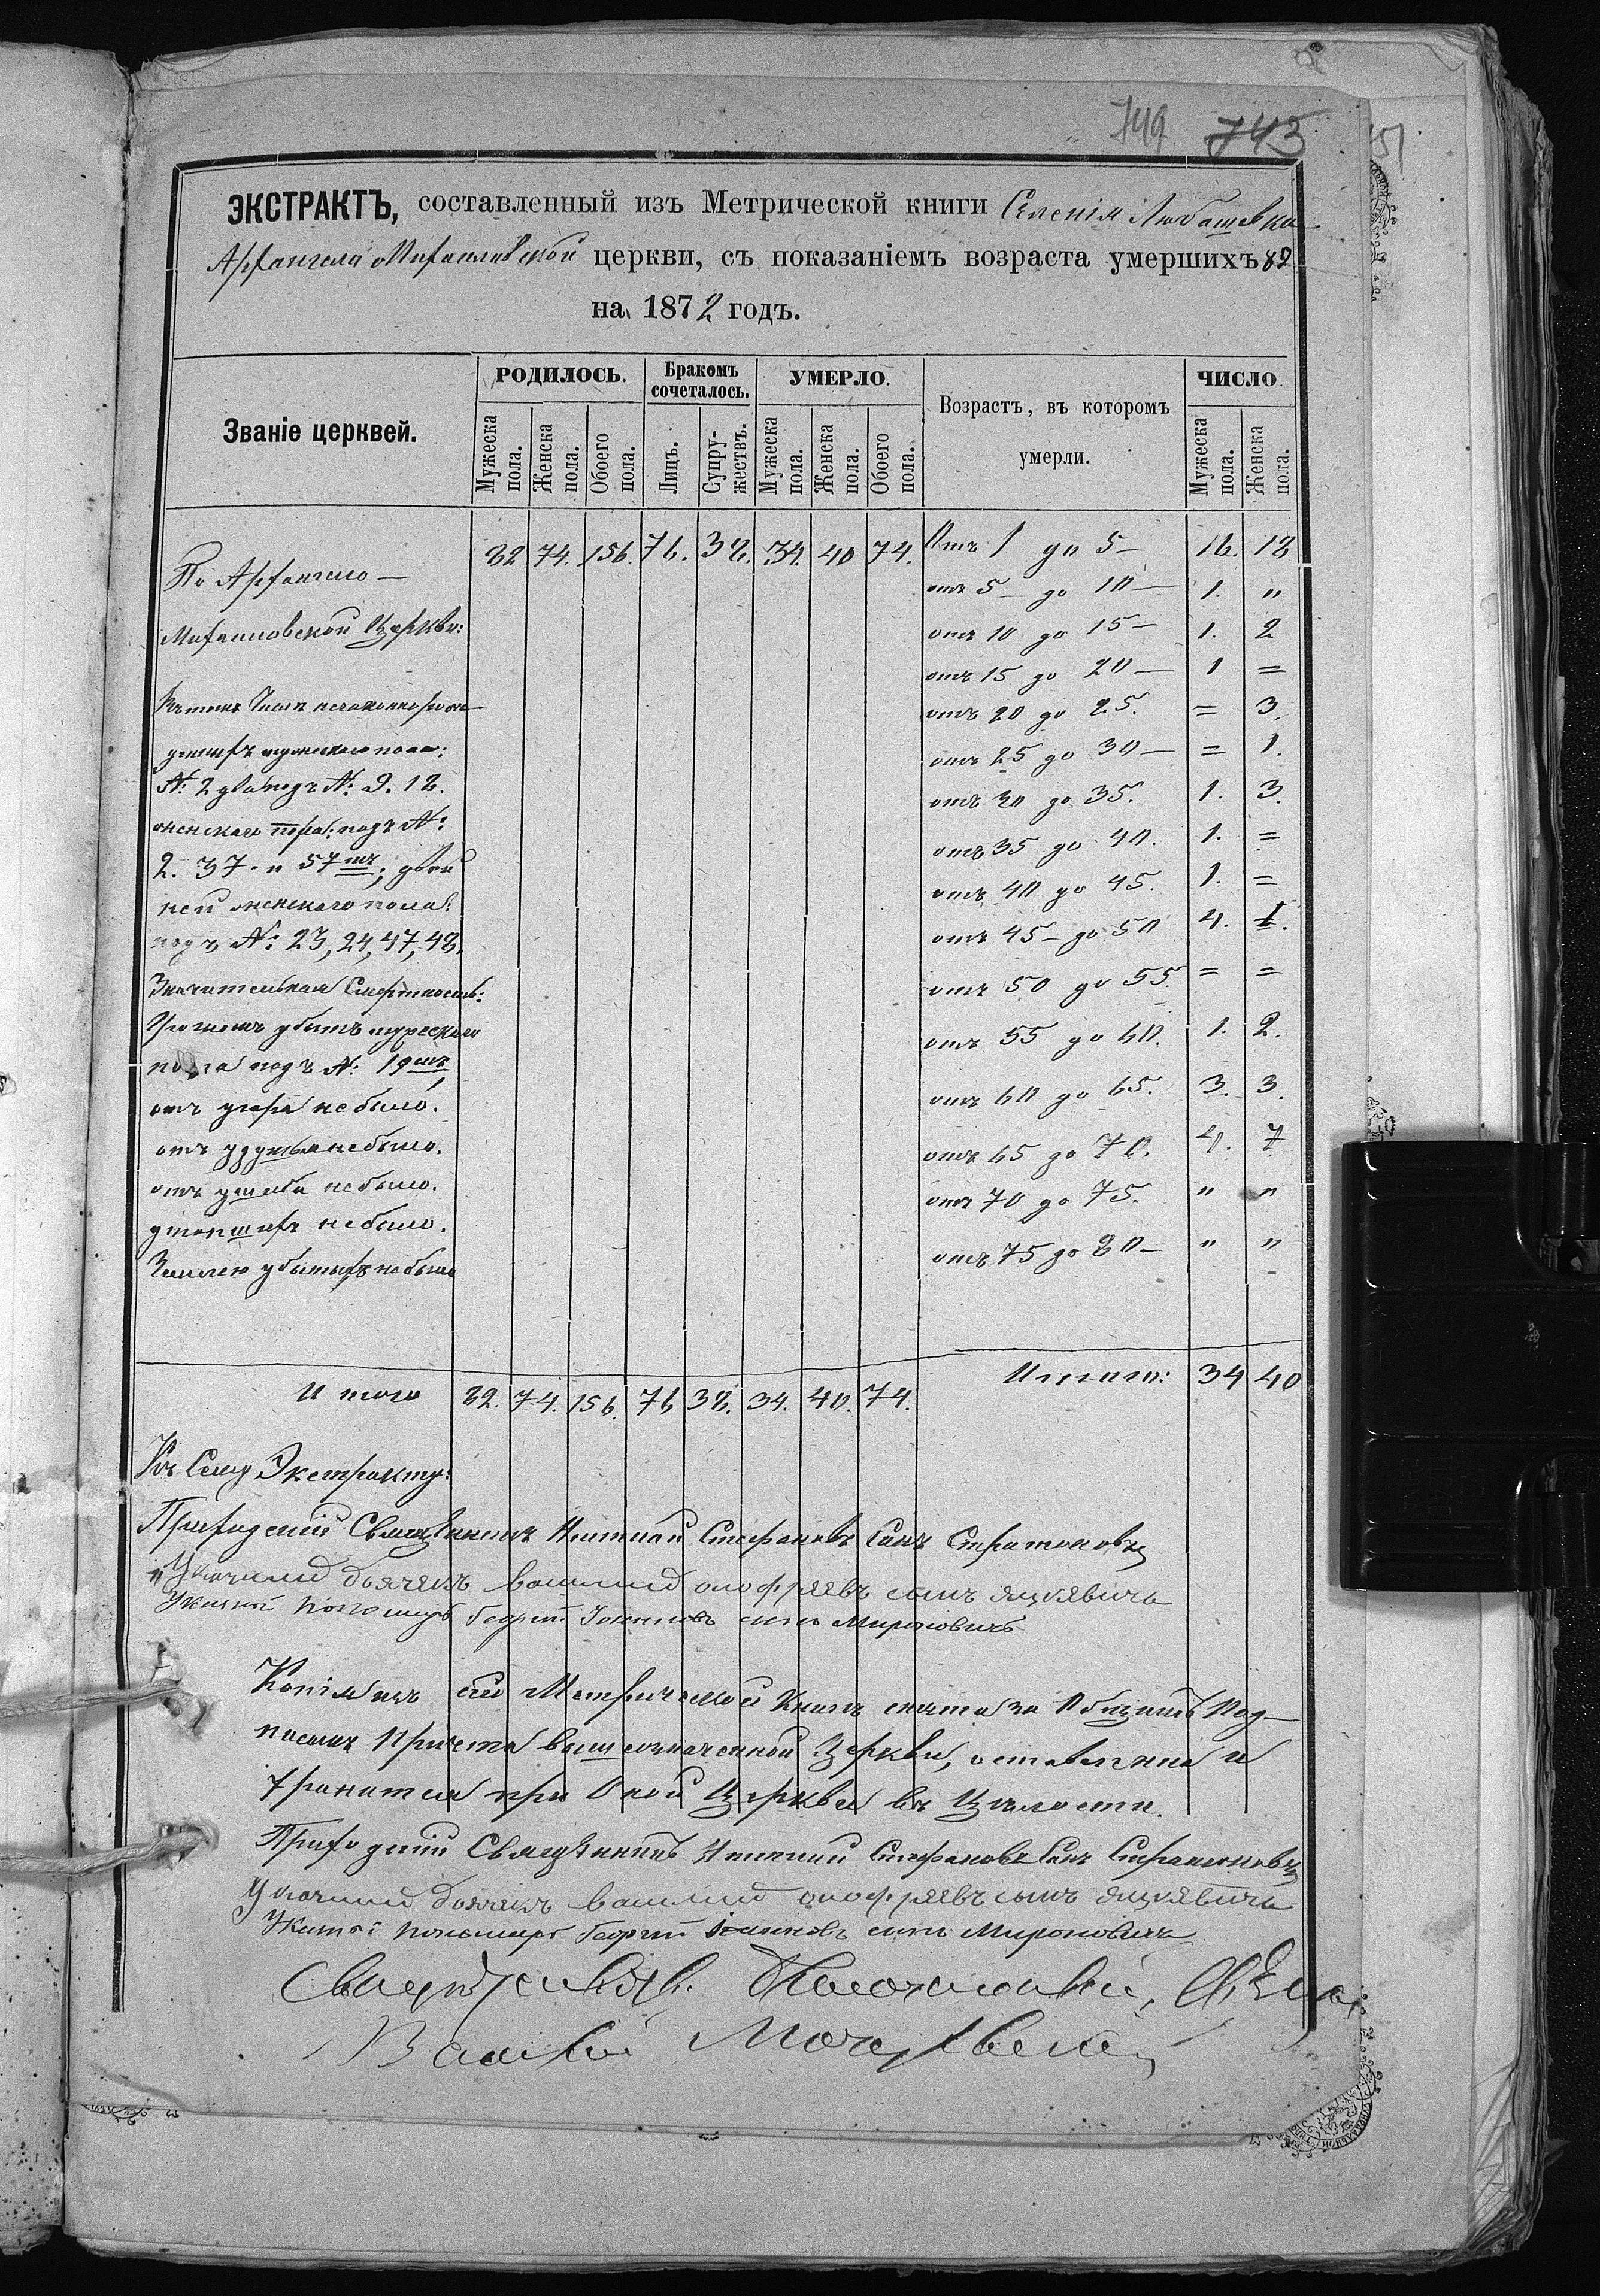 749 743
ЭКСТРАКТЪ, составленный изъ Метрической книги Селенія Любашевки
Архангело Михайловской церкви, съ показаніемъ возраста умершихъ 82
на 1872 годъ.
Званіе церквей. РОДИЛОСЬ. Бракомъ сочеталось. УМЕРЛО. Возрастъ, въ которомъ умерли. ЧИСЛО.
Мужеска пола. Женска пола. Обоего пола. Лицъ. Супружествъ. Мужеска пола. Женска пола. Обоего пола. Мужеска пола. Женска пола.
По Архангело— 82 74. 156. 76. 38. 34. 40 74. Отъ 1 до 5— 16. 18
отъ 5— до 10— 1. "
Михайловской Церкви: отъ 10 до 15— 1. 2
отъ 15 до 20— 1 =
Въ томъ числѣ незаконнорож— отъ 20 до 25. = 3.
денныхъ мужескаго пола: отъ 25 до 30— = 1.
№: 2 два подъ №: 9. 18. отъ 30 до 35. 1. 3.
женскаго пола: подъ №: отъ 35 до 40. 1. =
2. 37. и 57мъ; двой отъ 40 до 45. 1. =
ней женскаго пола:
подъ №: 23, 24, 47, 48. отъ 45— до 50 4. 1.
Значительная Смертность: отъ 50 до 55. = =
Громомъ убитъ мужескаго отъ 55 до 60. 1. 2.
пола подъ №: 19мъ
отъ угара не было. отъ 60 до 65. 3. 3.
отъ удушья не было. отъ 65 до 70. 4. 7
отъ ушиба не было. отъ 70 до 75. " "
утопшихъ не было.
Землею убитыхъ не было отъ 75 до 80— " "
Итого 82. 74. 156. 76 38. 34. 40. 74. Итого: 34 40
Къ Сему Экстракту:
Приходскій Священникъ Игнатій Стефановъ Сынъ Стратоновъ
Указный дьячекъ Василій Онофріевъ сынъ Яцкевичъ
Указной пономарь Георгій Іоанновъ сынъ Мироновичъ
Копія изъ сей Метрической Книги снята за Общимъ Под—
писомъ Причта вышеозначенной Церкви, оставлена и
Хранится при Оной Церкви въ Цѣлости.
Приходскій Священникъ Игнатій Стефановъ Сынъ Стратоновъ
Указный дьячекъ Василій Онофріевъ сынъ Яцкевичъ
Указной пономарь Георгій Іоанновъ сынъ Мироновичъ
Василій